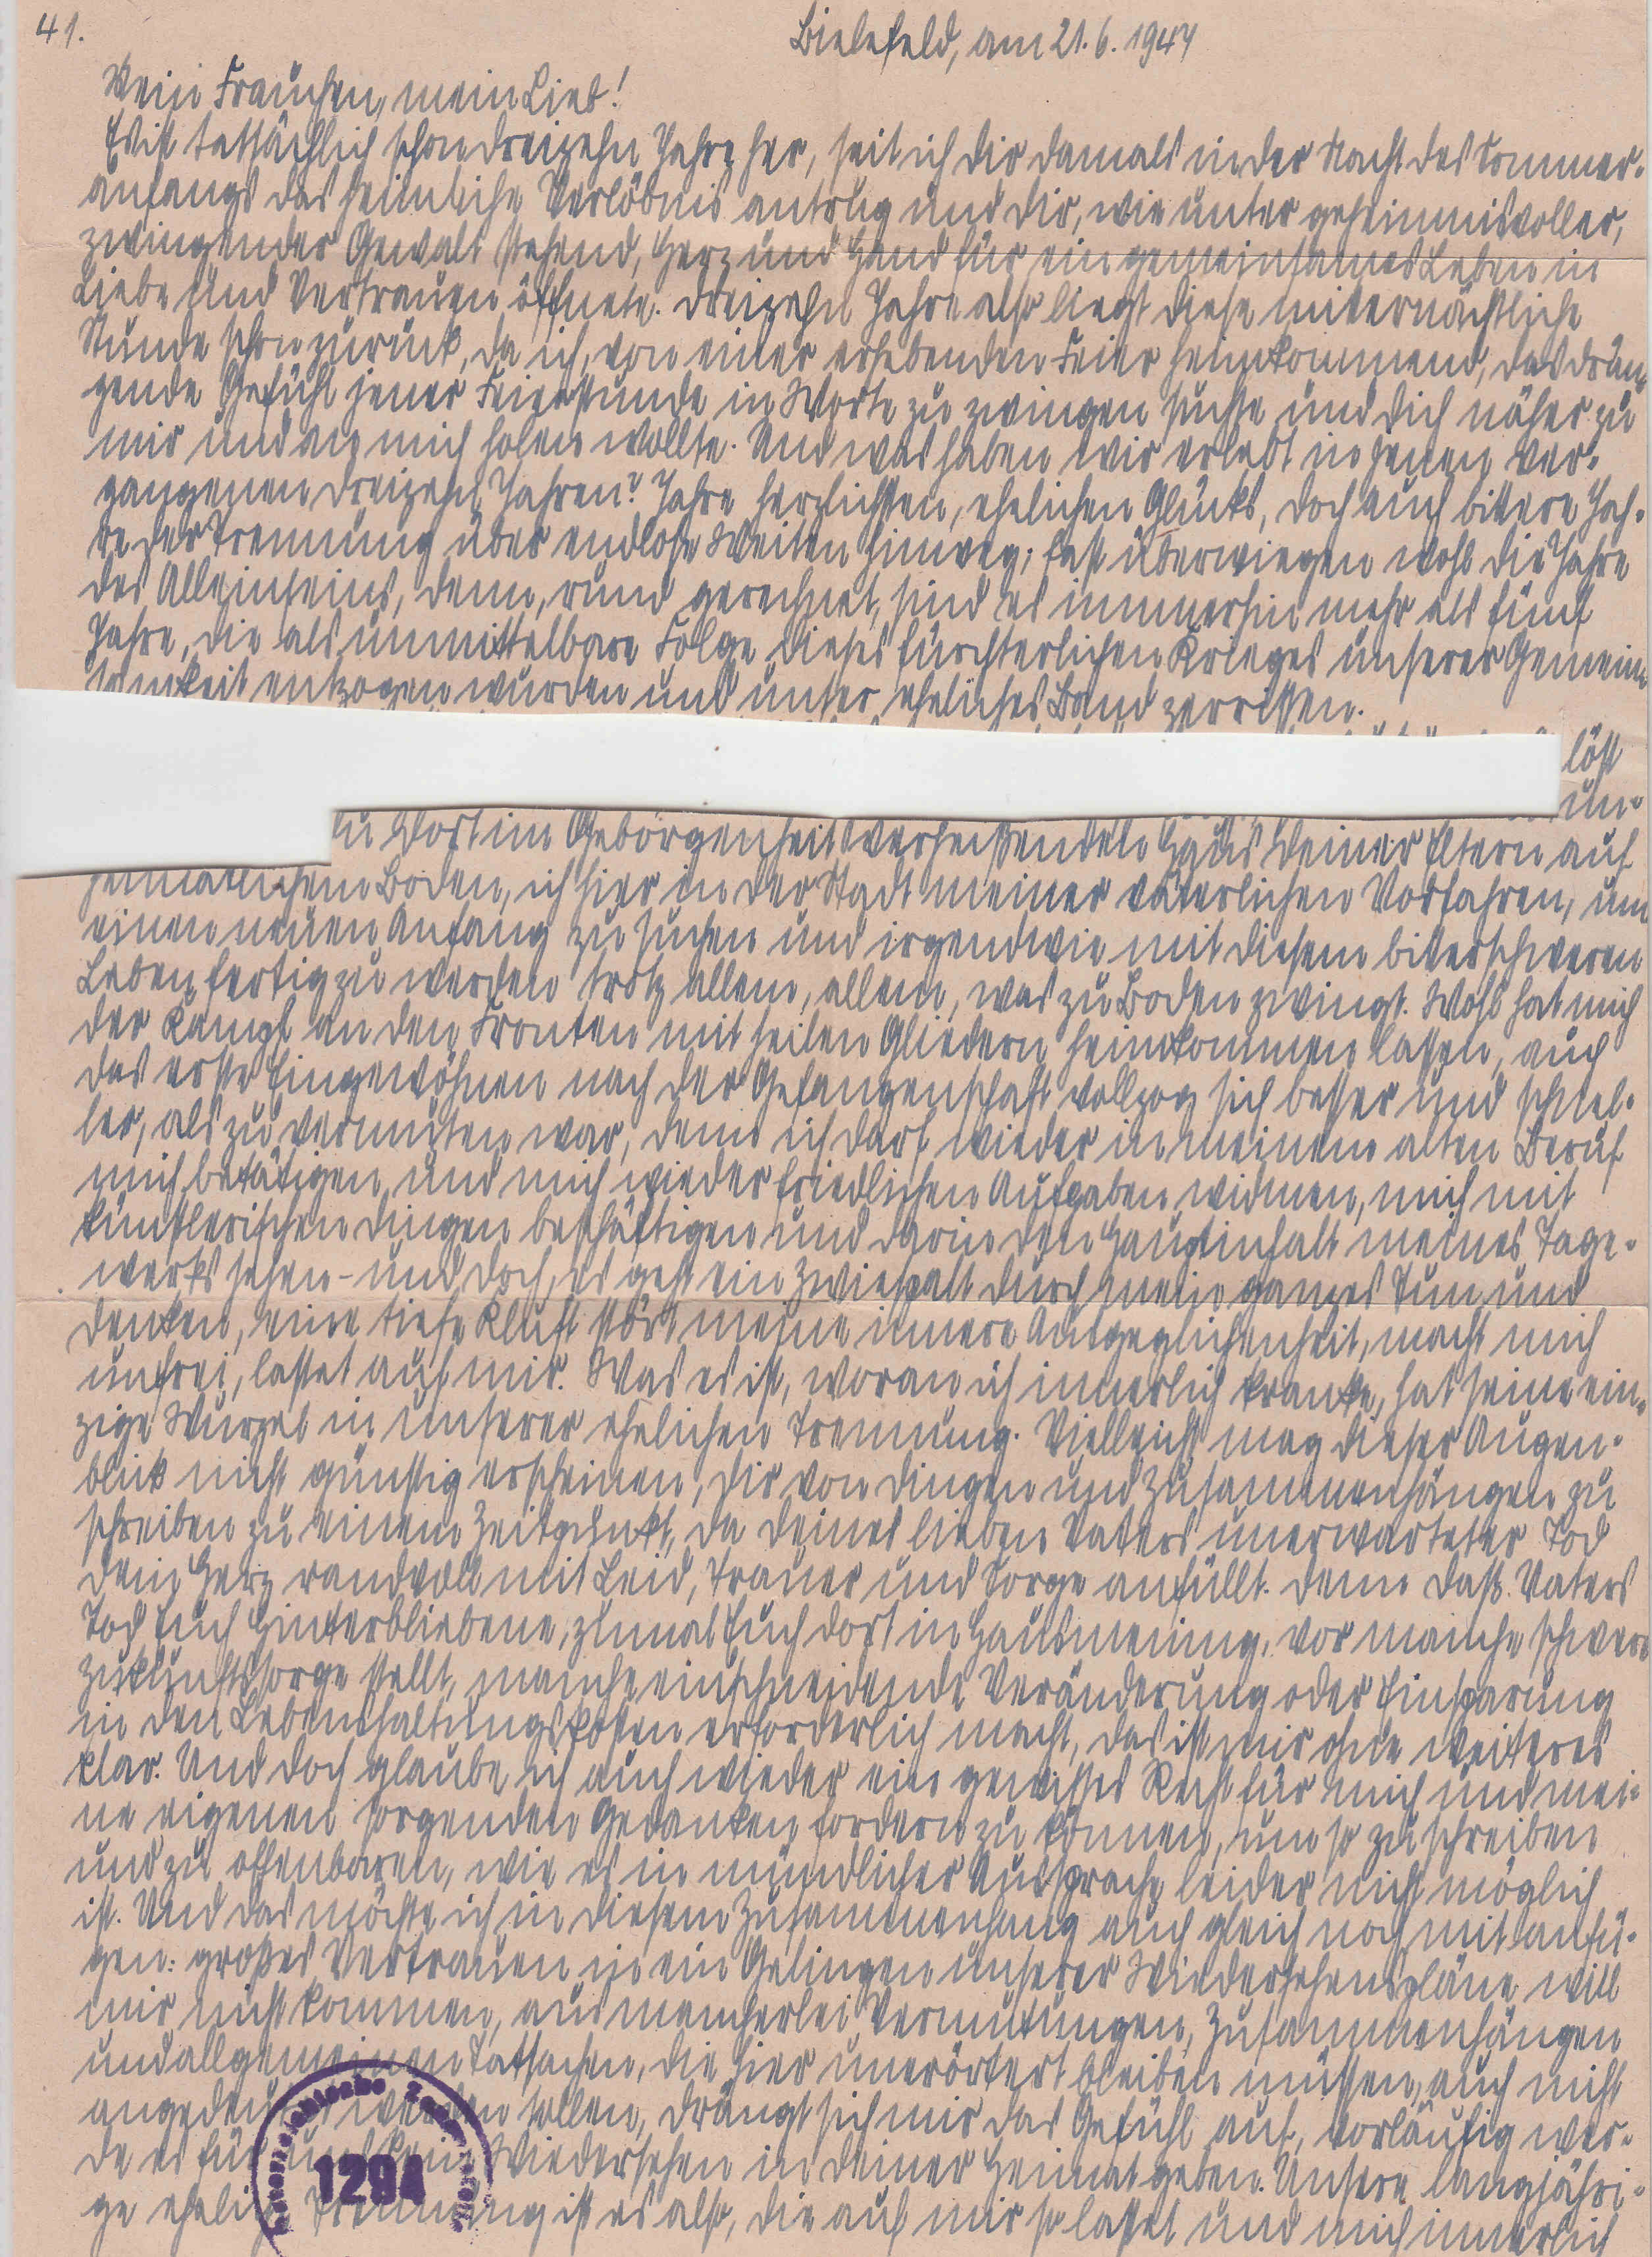 41.
Bielefeld, am 21.6.1947
Mein Frauchen, mein Lieb!
Es ist tatsächlich schon dreizehn Jahre her, seit ich dir damals in der Nacht des Sommer-
anfangs das heimliche Verlöbnis antrug und dir, wie unter geheimnisvoller,
zwingender Gewalt stehend, Herz und Hand für ein gemeinsames Leben in
Liebe und Vertrauen öffnete. Dreizehn Jahre also liegt diese mitternächtliche
Stunde schon zurück, da ich, von einer erhebenden Feier heimkommend, das drän-
gende Gefühl jener Feierstunde in Worte zu zwingen suchte und dich näher zu
mir und an mich holen wollte. Und was haben wir erlebt in jenen ver-
gangenen dreizehn Jahren? Jahre herzlichsten, ehelichen Glücks, doch auch bittere Jah-
re der Trennung über endlose Weiten hinweg; fast überwiegen wohl die Jahre
des Alleinseins, denn, rund gerechnet, sind es immerhin mehr als fünf
Jahre, die als unmittelbare Folge dieses fürchterlichen Krieges unserer Gemein-
samkeit entzogen wurden und unser eheliches Band zerrissen.
löst
un-
du dort im Geborgenheit verheißenden Haus deiner Eltern auf
heimatlichem Boden, ich hier in der Stadt meiner väterlichen Vorfahren, um
einen neuen Anfang zu suchen und irgendwie mit diesem bitterschweren
Leben fertig zu werden trotz allem, allem, was zu Boden zwingt. Wohl hat mich
der Kampf an den Fronten mit heilen Gliedern heimkommen lassen, auch
das erste Eingewöhnen nach der Gefangenschaft vollzog sich besser und schnel-
ler, als zu vermuten war, denn ich darf wieder in meinem alten Beruf
mich betätigen und mich wieder friedlichen Aufgaben widmen, mich mit
künstlerischen Dingen beschäftigen und darin den Hauptinhalt meines Tage-
werks sehen – und doch, es geht ein Zwiespalt durch mein ganzes Tun und
Denken, eine tiefe Kluft stört meine innere Ausgeglichenheit, macht mich
unfrei, lastet auf mir. Was es ist, woran ich innerlich kranke, hat seine ein-
zige Wurzel in unserer ehelichen Trennung. Vielleicht mag dieser Augen-
blick nicht günstig erscheinen, dir von Dingen und Zusammenhängen zu
schreiben zu einem Zeitpunkt, da deines lieben Vaters unerwarteter Tod
dein Herz randvoll mit Leid, Trauer und Sorge anfüllt. Denn daß Vaters
Tod Euch Hinterbliebene, zumal Euch dort in Hausmening, vor manche schwere
Zukunftssorge stellt, manche einschneidende Veränderung oder Einsparung
in den Lebenshaltungskosten erforderlich macht, das ist mir ohne weiteres
klar. Und doch glaube ich auch wieder ein gewisses Recht für mich und mei-
ne eigenen sorgenden Gedanken fordern zu können, um so zu schreiben
und zu offenbaren, wie es in mündlicher Aussprache leider nicht möglich
ist. Und das möchte ich in diesem Zusammenhang auch gleich noch mit anfü-
gen: großes Vertrauen in ein Gelingen unserer Wiedersehenspläne will
mir nicht kommen, aus mancherlei Vermutungen, Zusammenhängen
und allgemeinen Tatsachen, die hier unerörtert bleiben müssen, auch nicht
angedeutet werden sollen, drängt sich mir das Gefühl auf, vorläufig wer-
de es für uns kein Wiedersehen in deiner Heimat geben. Unsere langjähri-
ge ehelich Trennung ist es also, die auf mir so lastet und mich innerlich
1294